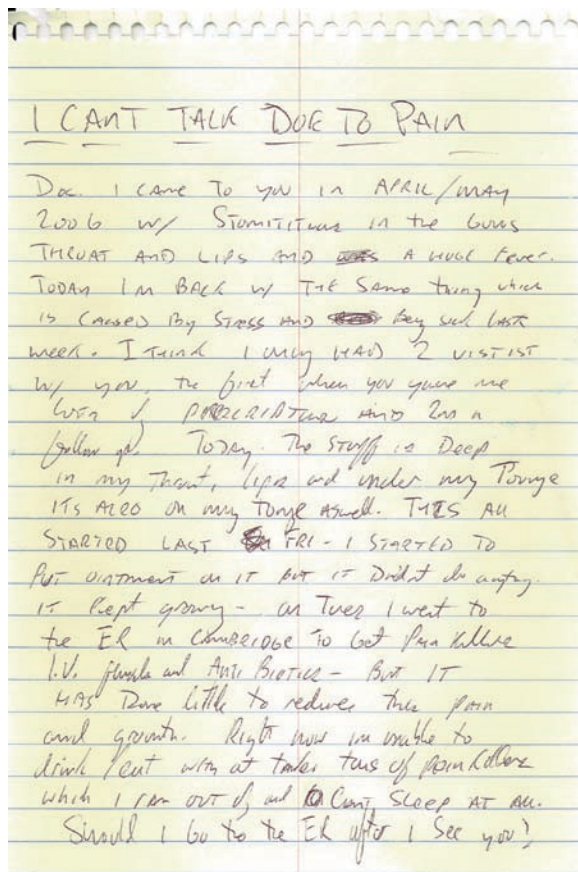 I CANT TALK DUE TO PAIN
Doc. I came to you in APRIL/MAY
2006 w/ in the Gums
THROAT AND LIPS AND A HUGE Fever.
TODAY IM BACK w/ THE Same thing which
is CAUSED By STRESS AND sick LAST
week. I THINK I only HAD 2
w/ you, the first when you me
AND 2nd a
follow up. TODAY. The STUFF is Deep
in my Throat, lips and under my Tounge
ITS ALSO on my Tonge aswell. THIS All
STARTED LAST FRI - I STARTED TO
Put ointment on IT BUT IT Didnt do
IT Kept growing - on Tues I went to
the ER in CAMBRIDGE To Get Pain Killers
I.V. and Anti - But IT
HAS Done little to reduce the pain
and growth. Right now im unable to
drink/eat of pain killers
which I ran out of and Cant SLEEP AT All.
Should I Go to the ER after I See you?